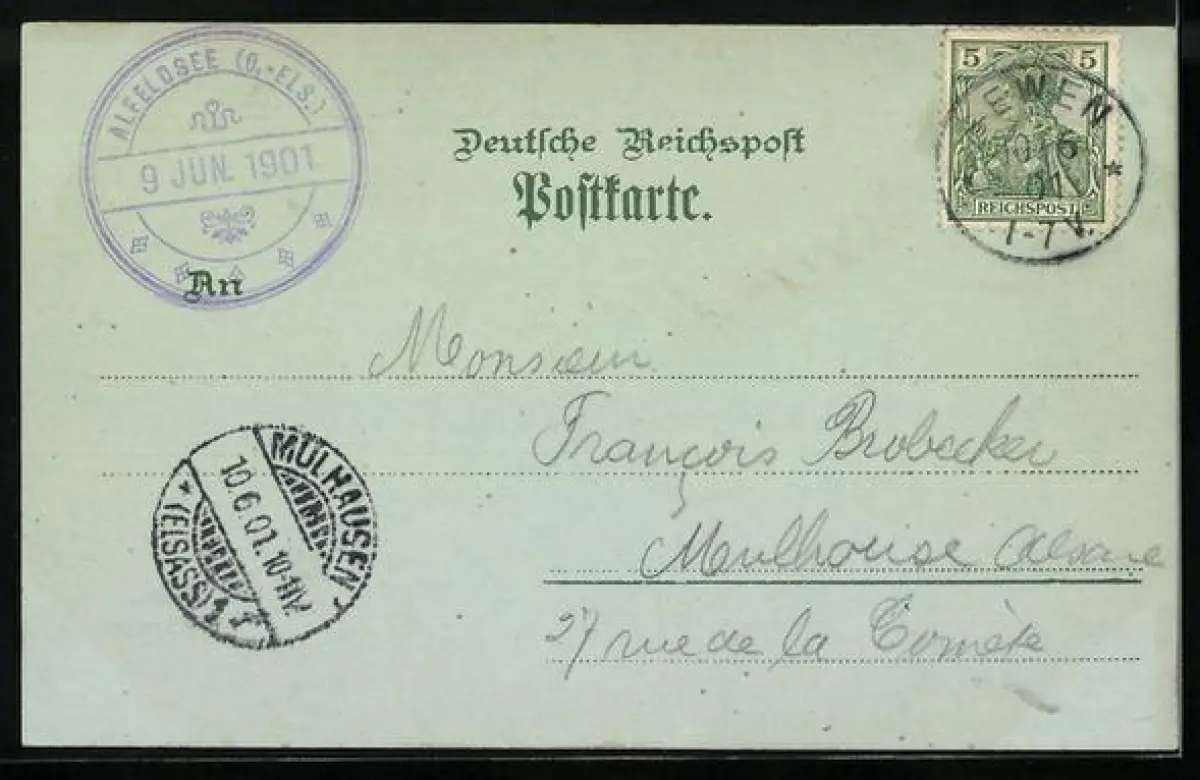 ALFELDSEE (O.-ELS.)
9 JUN. 1901.
Deutsche Reichspost
Postkarte.
5 5
REICHSPOST
EWEN
10 6
01
1-7 V.
An
Monsieur
François Brobecker
Mulhouse Alsace
27 rue de la Comète
MÜLHAUSEN
10.6.01.10-11V.
(ELSASS) 1